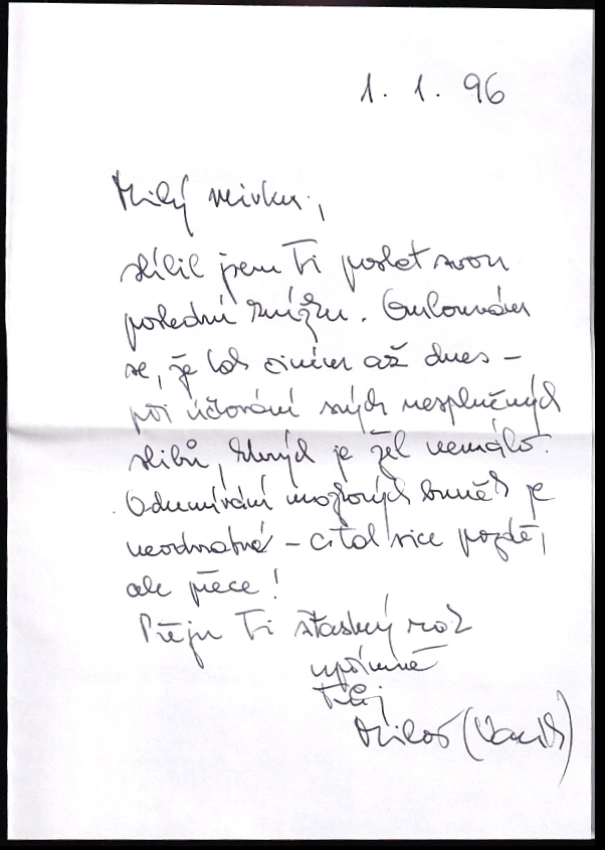 1. 1. 96
Milý Mirku,
slíbil jsem Ti poslat svou
poslední knížku. Omlouvám
se, že tak činím až dnes –
při účtování svých nesplněných
slibů, kterých je žel nemálo.
Odumírání mozkových buněk je
neodvratné – čili sice pozdě,
ale přece!
Přeji Ti šťastný rok
upřímně
Tvůj
Miloš (Vacík)